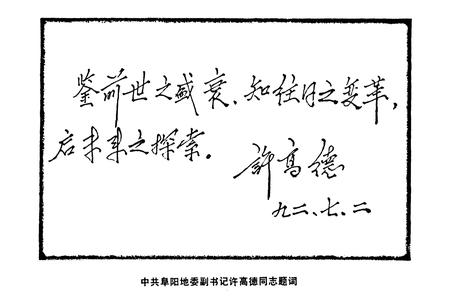 鉴前世之盛衰、知往日之变革，
启未来之探索。
許高德
九二、七、二
中共阜阳地委副书记许高德同志题词